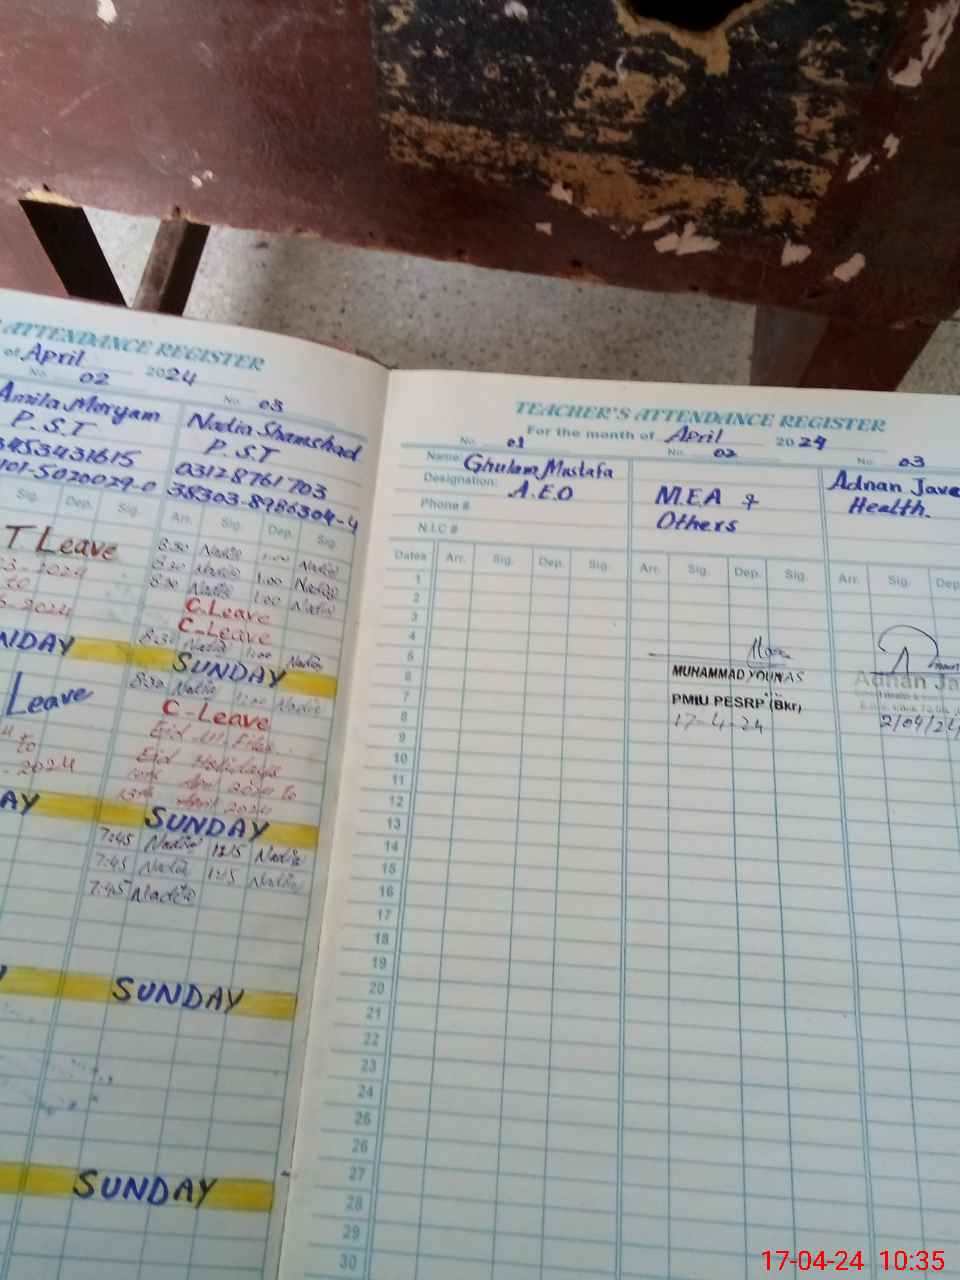 ATTENDANCE REGISTER
of April 2024
No. 02
No. 03
Amila Moryam
P.S.T
3453431615
101-5020029-0
Nadia Shamshad
P.S.T
03128761703
38303-8986304-4
Sig. Dep. Sig.
Arr. Sig. Dep. Sig.
T Leave
to
NDAY
Leave
to
2024
AY
8:30 Nadia 1:00 Nadia
8:30 Nadia 1:00 Nadia
8:30 Nadia 1:00 Nadia
C-Leave
C-Leave
8:30 Nadia 1:00 Nadia
SUNDAY
8:30 Nadia 1:00 Nadia
C-Leave
Eid Holidays
April 2024 to
April 2024
SUNDAY
7:45 Nadia 1:15 Nadia
7:45 Nadia 1:15 Nadia
7:45 Nadia
SUNDAY
SUNDAY
TEACHER'S ATTENDANCE REGISTER
For the month of April 2024
No. 01
No. 02
No. 03
Name: Ghulam Mustafa
Designation: A.E.O
Phone #
N.I.C #
M.E.A &
Others
Adnan Jave
Health.
Dates Arr. Sig. Dep. Sig. Arr. Sig. Dep. Sig. Arr. Sig. Dep
1
2
3
4
5
6
7
8
9
10
11
12
13
14
15
16
17
18
19
20
21
22
23
24
25
26
27
28
29
30
MUHAMMAD YOUNAS
PMIU PESRP (Bkr)
17-4-24
Adnan Ja
2/04/24
17-04-24 10:35